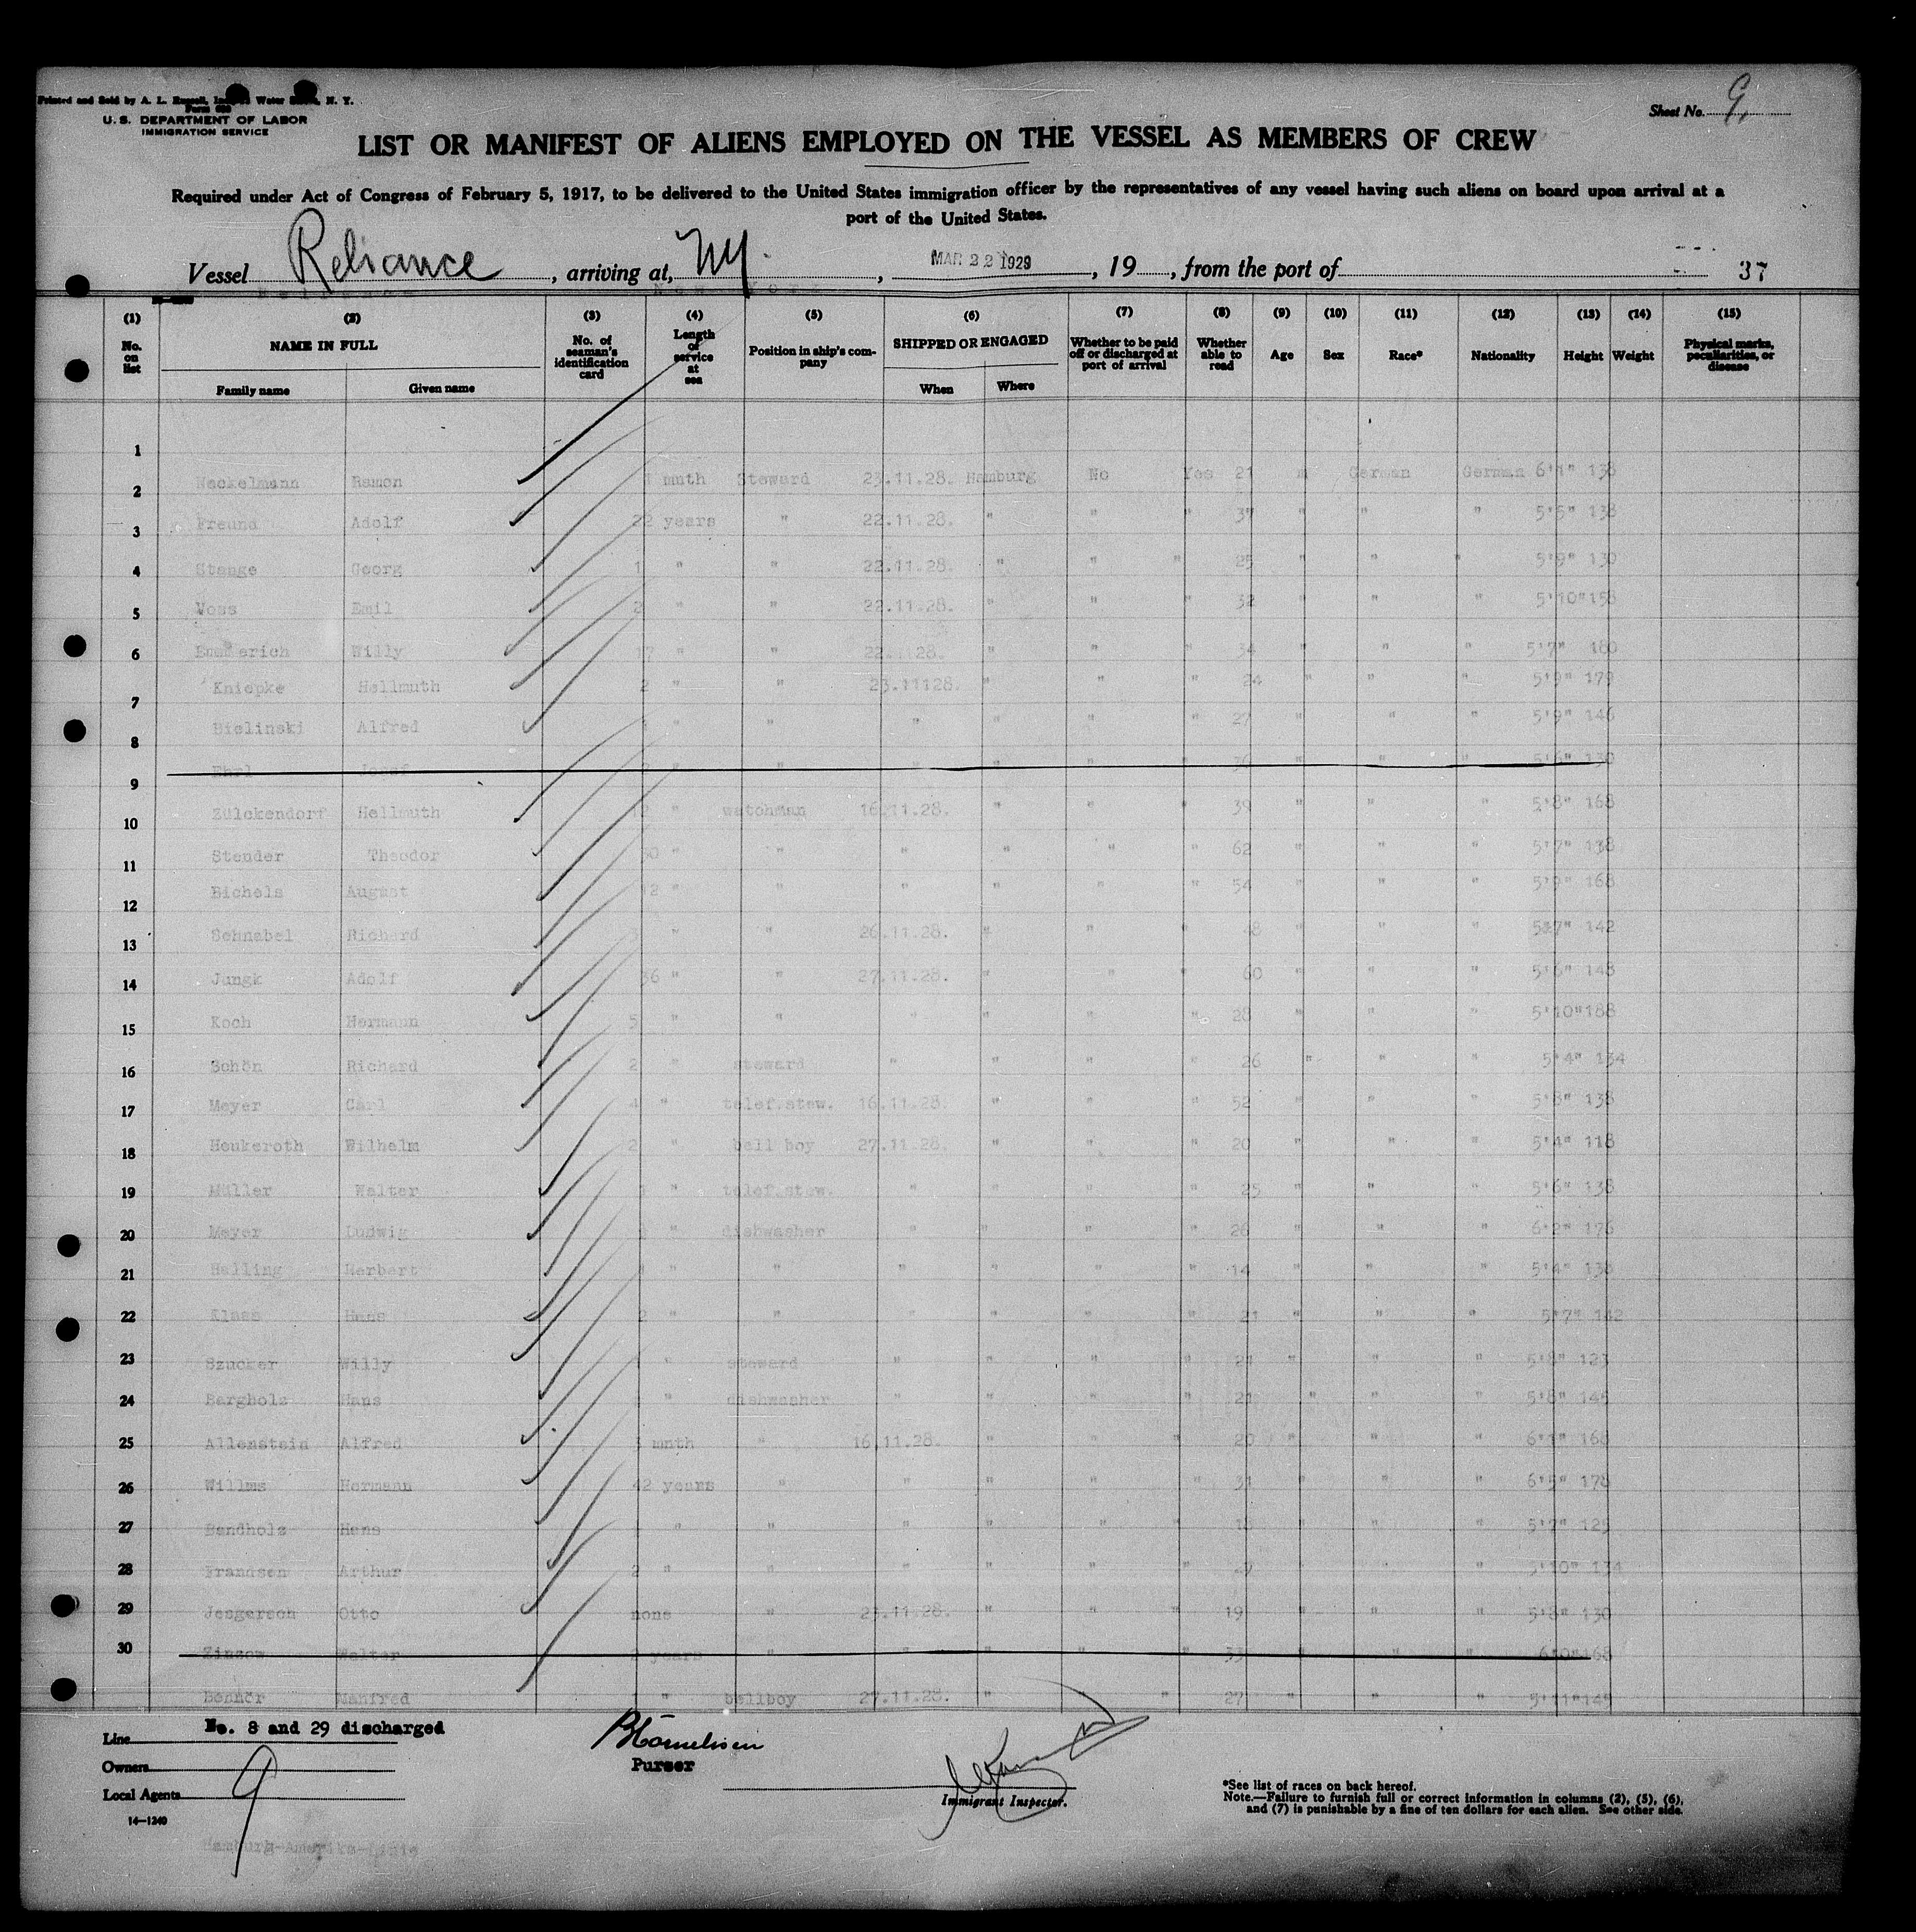 Printed and Sold by A. L. Russell, Water N. Y.
U. S. DEPARTMENT OF LABOR
IMMIGRATION SERVICE
Sheet No. 9.
LIST OR MANIFEST OF ALIENS EMPLOYED ON THE VESSEL AS MEMBERS OF CREW
Required under Act of Congress of February 5, 1917, to be delivered to the United States immigration officer by the representatives of any vessel having such aliens on board upon arrival at a
port of the United States.
Vessel Reliance, arriving at, NY., MAR 22 1929, 19, from the port of 37
(1) (2) (3) (4) (5) (6) (7) (8) (9) (10) (11) (12) (13) (14) (15)
No. on list NAME IN FULL Family name Given name No. of seaman's identification card Length of service at sea Position in ship's company SHIPPED OR ENGAGED When Where Whether to be paid off or discharged at port of arrival Whether able to read Age Sex Race* Nationality Height Weight Physical marks, peculiarities, or disease
1 Nackelmann Ramon mnth Steward 23.11.28. Hamburg No Yes 21 m German German 6'1" 138
2 Freund Adolf 22 years " 22.11.28. " " " 37 " " " 5'5" 138
3 Stange Georg 1 " " 22.11.28. " " " 25 " " " 5'9" 130
4 Voss Emil 2 " " 22.11.28. " " " 32 " " " 5'10" 158
5 Emmerich Willy 17 " " 22. 28. " " " 34 " " " 5'7" 160
6 Kniepke Hellmuth 2 " " 23.11128. " " " 24 " " " 5'9" 179
7 Bielinski Alfred " " " " " " 27 " " " 5'9" 146
8 Ehrl Josef " " " " " " 36 " " " 5'6" 130
9 Zülckendorf Hellmuth 12 " watchman 16.11.28. " " " 39 " " " 5'8" 168
10 Stender Theodor 50 " " " " " " 62 " " " 5'7" 138
11 Bichels August 12 " " " " " " 54 " " " 5'9" 168
12 Schnabel Richard 3 " " 26.11.28. " " " 48 " " " 5'7" 142
13 Jungk Adolf 36 " " 27.11.28. " " " 60 " " " 5'6" 148
14 Koch Hermann 5 " " " " " " 28 " " " 5'10" 188
15 Schön Richard 2 " steward " " " " 26 " " " 5'4" 134
16 Meyer Carl 4 " telef.stew. 16.11.28. " " " 52 " " " 5'8" 138
17 Heukeroth Wilhelm 2 " bell boy 27.11.28. " " " 20 " " " 5'4" 118
18 Müller Walter " telef.stew. " " " " 25 " " " 5'6" 138
19 Meyer Ludwig " dishwasher " " " " 26 " " " 6'2" 176
20 Helling Herbert " " " " " " 14 " " " 5'4" 138
21 Klaas Hans 2 " " " " " " 21 " " " 5'7" 142
22 Szucker Willy " steward " " " " 21 " " " 5'8" 123
23 Bergholz Hans " dishwasher " " " " 21 " " " 5'8" 145
24 Allenstein Alfred mnth " 16.11.28. " " " 20 " " " 6'1" 168
25 Willms Hermann 42 years " " " " " 31 " " " 6'5" 178
26 Bendholz Hans " " " " " " 18 " " " 5'7" 125
27 Frandsen Arthur 2 " " " " " " " " " 5'10" 134
28 Jesgersch Otto none " 23.11.28. " " " 19 " " " 5'8" 130
29 Zinsow Walter years " " " " " 33 " " " 6'0" 168
30 Benhör Manfred " bellboy 27.11.28. " " " 27 " " " 5'11" 145
Line No. 8 and 29 discharged
Owners
Local Agents
9
14—1240
Hamburg-Amerika-Linie
BCornelissen
Purser
Immigrant Inspector.
*See list of races on back hereof.
Note.—Failure to furnish full or correct information in columns (2), (5), (6),
and (7) is punishable by a fine of ten dollars for each alien. See other side.